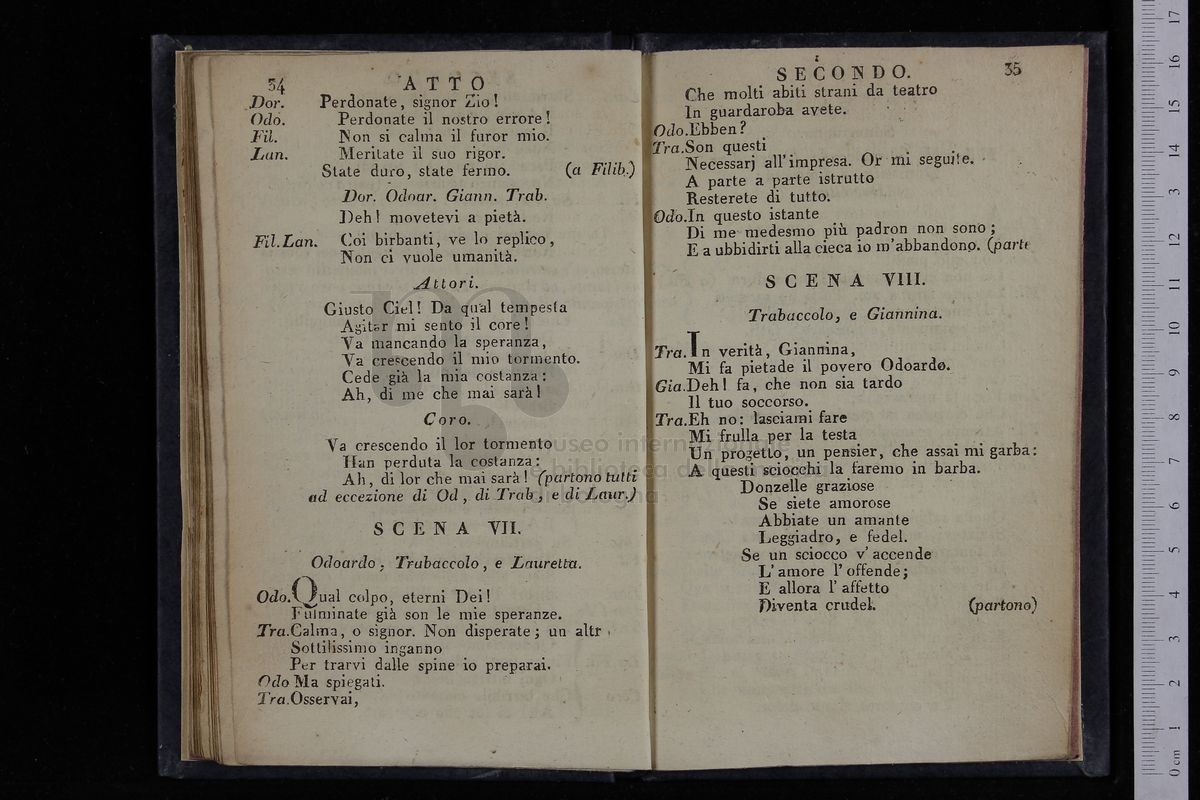 34 ATTO
Dor. Perdonate, signor Zio!
Odo. Perdonate il nostro errore!
Fil. Non si calma il furor mio.
Lan. Meritate il suo rigor.
State duro, state fermo. (a Filib.)
Dor. Odoar. Giann. Trab.
Deh! movetevi a pietà.
Fil.Lan. Coi birbanti, ve lo replico,
Non ci vuole umanità.
Attori.
Giusto Ciel! Da qual tempesta
Agitar mi sento il core!
Va mancando la speranza,
Va crescendo il mio tormento.
Cede già la mia costanza:
Ah, di me che mai sarà!
Coro.
Va crescendo il lor tormento
Han perduta la costanza:
Ah, di lor che mai sarà! (partono tutti
ad eccezione di Od, di Trab, e di Laur.)
SCENA VII.
Odoardo, Trabaccolo, e Lauretta.
Odo. Qual colpo, eterni Dei!
Fulminate già son le mie speranze.
Tra. Calma, o signor. Non disperate; un altr
Sottilissimo inganno
Per trarvi dalle spine io preparai.
Odo Ma spiegati.
Tra. Osservai,
SECONDO. 35
Che molti abiti strani da teatro
In guardaroba avete.
Odo. Ebben?
Tra. Son questi
Necessarj all'impresa. Or mi seguite.
A parte a parte istrutto
Resterete di tutto.
Odo. In questo istante
Di me medesmo più padron non sono;
E a ubbidirti alla cieca io m'abbandono. (parte
SCENA VIII.
Trabaccolo, e Giannina.
Tra. In verità, Giannina,
Mi fa pietade il povero Odoardo.
Gia. Deh! fa, che non sia tardo
Il tuo soccorso.
Tra. Eh no: lasciami fare
Mi frulla per la testa
Un progetto, un pensier, che assai mi garba:
A questi sciocchi la faremo in barba.
Donzelle graziose
Se siete amorose
Abbiate un amante
Leggiadro, e fedel.
Se un sciocco v'accende
L'amore l'offende;
E allora l'affetto
Diventa crudel. (partono)
museo internazionale
e biblioteca della musica
di bologna
0 cm 1 2 3 4 5 6 7 8 9 10 11 12 13 14 15 16 17